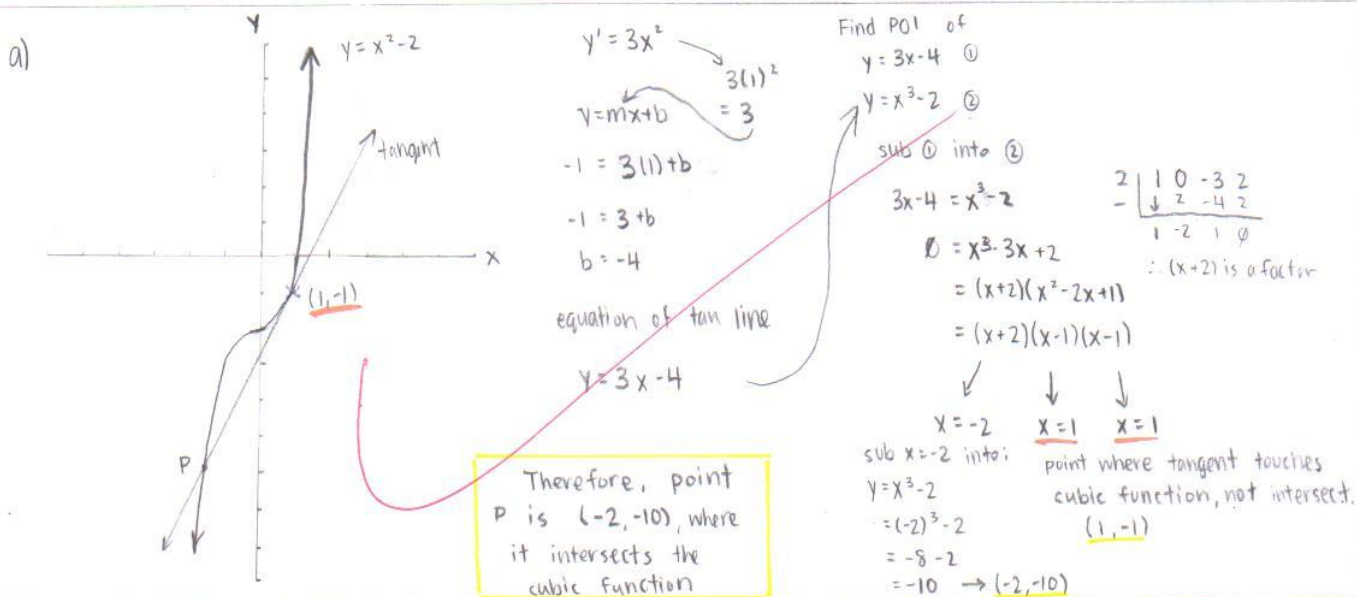 a)
Y
y = x² - 2
tangent
X
(1, -1)
P
y' = 3x²
3(1)²
= 3
y = mx + b
-1 = 3(1) + b
-1 = 3 + b
b = -4
equation of tan line
y = 3x - 4
Therefore, point
P is (-2, -10), where
it intersects the
cubic function
Find POI of
y = 3x - 4 ①
y = x³ - 2 ②
sub ① into ②
3x - 4 = x³ - 2
0 = x³ - 3x + 2
= (x+2)(x² - 2x + 1)
= (x+2)(x-1)(x-1)
2 | 1 0 -3 2
- | ↓ 2 -4 2
1 -2 1 0
∴ (x+2) is a factor
x = -2 x = 1 x = 1
sub x = -2 into:
y = x³ - 2
= (-2)³ - 2
= -8 - 2
= -10 → (-2, -10)
point where tangent touches
cubic function, not intersect.
(1, -1)